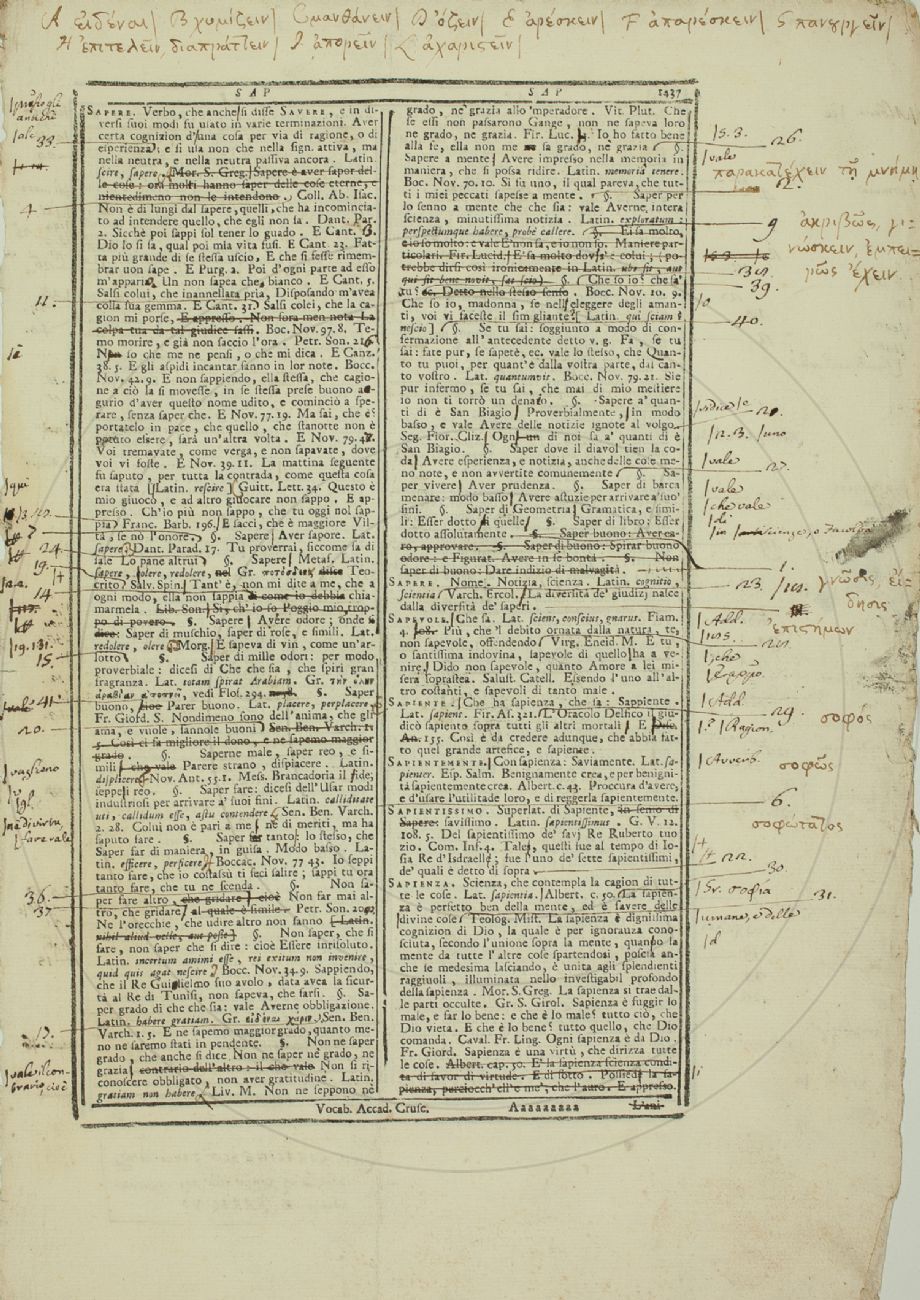 A εἰδέναι/ B χυμίζειν/ C μανθάνειν/ D ὄζειν/ E ἀρέσκειν/ F ἀπαρέσκειν/ πανουργεῖν/
H ἐπιτελεῖν, διαπράττειν/ I ἀπορεῖν/ L ἀχαριστεῖν/
SAP SAP 1437
SAPERE. Verbo, che anche si disse SAVERE, e in di-
versi suoi modi fu usato in varie terminazioni. Aver
certa cognizion d'una cosa per via di ragione, o di
esperienza; e si usa non che nella sign. attiva, ma
nella neutra, e nella neutra passiva ancora. Latin.
scire, sapere. Mor. S. Greg. Sapere è aver sapor del-
le cose: ora molti hanno saper delle cose eterne, e
nientedimeno non le intendono. Coll. Ab. Isac.
Non è di lungi dal sapere, quelli, che ha incomincia-
to ad intendere quello, che egli non sa. Dant. Par.
2. Sicchè poi sappi sol tener lo guado. E Cant.
Dio lo si sa, qual poi mia vita fusi. E Cant. 23. Fat-
ta più grande di se stessa uscio, E che si fesse rimem-
brar non sape. E Purg. 2. Poi d'ogni parte ad esso
m'appario, Un non sapea che bianco. E Cant. 5.
Salsi colui, che inannellata pria, Disposando m'avea
colla sua gemma. E Cant. 31. Salsi colei, che la ca-
gion mi porse. E appresso. Non fora men nota La
colpa tua da tal giudice sassi. Boc. Nov. 97. 8. Te-
mo morire, e già non saccio l'ora. Petr. Son. 216
Non so che me ne pensi, o che mi dica. E Canz.
38. 5. E gli aspidi incantar sanno in lor note. Bocc.
Nov. 42. 9. E non sappiendo, ella stessa, che cagio-
ne a ciò la si movesse, in se stessa prese buono au-
gurio d'aver questo nome udito, e cominciò a spe-
rare, senza saper che. E Nov. 77. 19. Ma sai, che è?
portatelo in pace, che quello, che stanotte non è
potuto essere, sarà un'altra volta. E Nov. 79. 4
Voi tremavate, come verga, e non sapavate, dove
voi vi foste. E Nov. 39. 11. La mattina seguente
fu saputo, per tutta la contrada, come questa cosa
era stata. Latin. rescire. Guitt. Lett. 34. Questo è
mio giuoco, e ad altro giuocare non sappo. E ap-
presso. Ch'io più non sappo, che tu oggi nol sap-
pia. Franc. Barb. 196. E sacci, che è maggiore Vil-
tà, se nò l'onore. §. Sapere. Aver sapore. Lat.
sapere. Dant. Parad. 17. Tu proverai, siccome sa di
sale Lo pane altrui. §. Sapere. Metaf. Latin.
sapere, olere, redolere, nel Gr. Teo-
crito. Salv. Spin. Tant'è, non mi dite a me, che a
ogni modo, ella non sappia di come io debbia chia-
marmela. Lib. Son. Si, ch'io so Poggio mio, trop-
po di povero. §. Sapere. Avere odore; onde si
dice: Saper di muschio, saper di rose, e simili. Lat.
redolere, olere. Morg. E sapeva di vin, come un'ar-
lotto. §. Saper di mille odori: per modo
proverbiale: dicesi di Che che sia, che spiri gran
fragranza. Lat. totam spirat Arabiam. Gr.
vedi Flos. 294. §. Saper
buono, cioè Parer buono. Lat. placere, perplacere,
Fr. Giord. S. Nondimeno sono dell'anima, che gli
ama, e vuole, sannole buoni. Sen. Ben. Varch. 11
5. Così ci sa migliore il dono, e ne sapemo maggior
grado. §. Saperne male, saper reo, e si-
mili, che vale Parere strano, dispiacere. Latin.
displicere. Nov. Ant. 55. 1. Mess. Brancadoria il side;
seppeli reo. §. Saper fare: dicesi dell'Usar modi
industriosi per arrivare a' suoi fini. Latin. calliditate
uti, callidum esse, astu contendere. Sen. Ben. Varch.
2. 28. Colui non è pari a me, nè di meriti, ma ha
saputo fare. §. Saper far tanto: lo stesso, che
Saper far di maniera, in guisa. Modo basso. La-
tin. efficere, perficere. Boccac. Nov. 77 43. Io seppi
tanto fare, che io costassù ti feci salire; sappi tu ora
tanto fare, che tu ne scenda. §. Non sa-
per fare altro, che gridare, cioè Non far mai al-
tro, che gridare, al quale è simile. Petr. Son. 20
Ne l'orecchie, che udire altro non sanno. Latin.
nihil aliud velle, aut posse. §. Non saper, che si
fare, non saper che si dire: cioè Essere inrisoluto.
Latin. incertum animi esse, rei exitum non invenire,
quid quis agat nescire. Bocc. Nov. 34. 9. Sappiendo,
che il Re Guiglielmo suo avolo, data avea la sicur-
tà al Re di Tunisi, non sapeva, che farsi. §. Sa-
per grado di che che sia: vale Averne obbligazione.
Latin. habere gratiam. Gr. εἰδέναι χάριν. Sen. Ben.
Varch. 1. 5. E ne sapemo maggior grado, quanto me-
no ne saremo stati in pendente. §. Non ne saper
grado, che anche si dice Non ne saper nè grado, ne
grazia, contrario dell'altro: il che vale Non si ri-
conoscere obbligato, non aver gratitudine. Latin.
gratiam non habere. Liv. M. Non ne seppono nè
grado, nè grazia allo 'mperadore. Vit. Plut. Che
se essi non passarono Gange, non ne sapeva loro
ne grado, ne grazia. Fir. Luc. Io ho fatto bene
alla fe, ella non me ne sa grado, nè grazia. §.
Sapere a mente. Avere impresso nella memoria in
maniera, che si possa ridire. Latin. memoria tenere.
Boc. Nov. 70. 10. Si fu uno, il qual pareva, che tut-
ti i miei peccati sapesse a mente. §. Saper per
lo senno a mente che che sia: vale Averne intera
scienza, minutissima notizia. Latin. exploratum:
perspectumque habere, probè callere. §. Ei sa molto,
e io so molto: e vale E' non sa, e io non so. Maniere par-
ticolari. Fir. Lucid. E' sa molto dove s'è colui; (po-
trebbe dirsi così ironicamente in Latin. ubi sit, aut
qui sit bene novit, sat scio). §. Che so io? che sa'
tu? ec. Detto nello stesso senso. Bocc. Nov. 10. 9.
Che so io, madonna, se nell'eleggere degli aman-
ti, voi vi faceste il simigliante? Latin. qui sciam?
nescio. §. Se tu sai: soggiunto a modo di con-
fermazione all'antecedente detto v. g. Fa, se tu
sai: fate pur, se sapete, ec. vale lo stesso, che Quan-
to tu puoi, per quant'è dalla vostra parte, dal can-
to vostro. Lat. quantumvis. Bocc. Nov. 79. 21. Sie
pur infermo, se tu sai, che mai di mio mestiere
io non ti torrò un denajo. §. Sapere a quan-
ti dì è San Biagio. Proverbialmente, in modo
basso, e vale Avere delle notizie ignote al volgo.
Seg. Fior. Cliz. Ogn'un di noi sa a' quanti dì è
San Biagio. §. Saper dove il diavol tien la co-
da. Avere esperienza, e notizia, anche delle cose me-
no note, e non avvertite comunemente. §. Sa-
per vivere. Aver prudenza. §. Saper di barca
menare: modo basso. Avere astuzie per arrivare a' suo'
fini. §. Saper di Geometria, Gramatica, e simi-
li: Esser dotto di quelle. §. Saper di libro: Esser
dotto assolutamente. §. Saper buono: Aver ca-
ro, approvare. §. Saper di buono: Spirar buono
odore: e Figurat. Avere in se bontà. §. Non
saper di buono: Dare indizio di malvagità.
SAPERE. Nome. Notizia, scienza. Latin. cognitio,
scientia. Varch. Ercol. La diversità de' giudizj nalce
dalla diversità de' saperi.
SAPEVOLE. Che sa. Lat. sciens, conscius, gnarus. Fiam.
4. Più, che 'l debito ornata dalla natura, te,
non sapevole, offendendo. Virg. Eneid. M. E tu,
o santissima indovina, sapevole di quello ha a ve-
nire. Dido non sapevole, quanto Amore a lei mi-
sera soprastea. Salust. Catell. Essendo l'uno all'al-
tro costanti, e sapevoli di tanto male.
SAPIENTE. Che ha sapienza, che sa: Sappiente.
Lat. sapiens. Fir. As. 321. L'Oracolo Delfico, giu-
dicò sapiente sopra tutti gli altri mortali.
An. 155. Così è da credere adunque, che abbia fat-
to quel grande artefice, e sapiente.
SAPIENTEMENTE. Con sapienza: Saviamente. Lat. sa-
pienter. Esp. Salm. Benignamente crea, e per benigni-
tà sapientemente crea. Albert. c. 43. Proccura d'avere,
e d'usare l'utilitade loro, e di reggerla sapientemente.
SAPIENTISSIMO. Superlat. di Sapiente, in senso di
Sapere: savissimo. Latin. sapientissimus. G. V. 12.
108. 5. Del sapientissimo de' savj Re Ruberto tuo
zio. Com. Inf. 4. Tale, questi fue al tempo di Io-
sia Re d'Isdraelle; fue l'uno de' sette sapientissimi,
de' quali è detto di sopra.
SAPIENZA. Scienza, che contempla la cagion di tut-
te le cose. Lat. sapientia. Albert. c. 50. La sapien-
za è perfetto ben della mente, ed è savere delle
divine cose. Teolog. Mist. La sapienza è dignissima
cognizion di Dio, la quale è per ignoranza cono-
sciuta, secondo l'unione sopra la mente, quando la
mente da tutte l'altre cose spartendosi, poscia an-
che se medesima lasciando, è unita agli splendienti
raggiuoli, illuminata nello investigabil profondo
della sapienza. Mor. S. Greg. La sapienza si trae dal-
le parti occulte. Gr. S. Girol. Sapienza è fuggir lo
male, e far lo bene: e che è lo male? tutto ciò, che
Dio vieta. E che è lo bene? tutto quello, che Dio
comanda. Caval. Fr. Ling. Ogni sapienza è da Dio.
Fr. Giord. Sapienza è una virtù, che dirizza tutte
le cose. Albert. cap. 50. E' la sapienza scienza condi-
ta di savor di virtude. E di sotto. Possiedi la sa-
pienza, perciocch' ell'è me', che l'auro. E appresso.
Vocab. Accad. Crusc. Aaaaaaaaa L'ani
33.
4
11.
24
19.
14
15.
41.
20.
36.
37
13.
26.
vale
παρακατέχειν τῇ μνήμῃ
2.
9 ἀκριβῶς, γι-
νώσκειν, ἐμπει-
ρῶς ἔχειν.
39.
40.
vale
27.
vale
che vale
23. γνῶσις, εἴ-
δησις
ἐπιστήμων
Add.
che
Add.
29. σοφός
Avverb.
σοφῶς
6.
σοφώτατος
22.
30.
Sv. σοφία
31.
umane, e delle